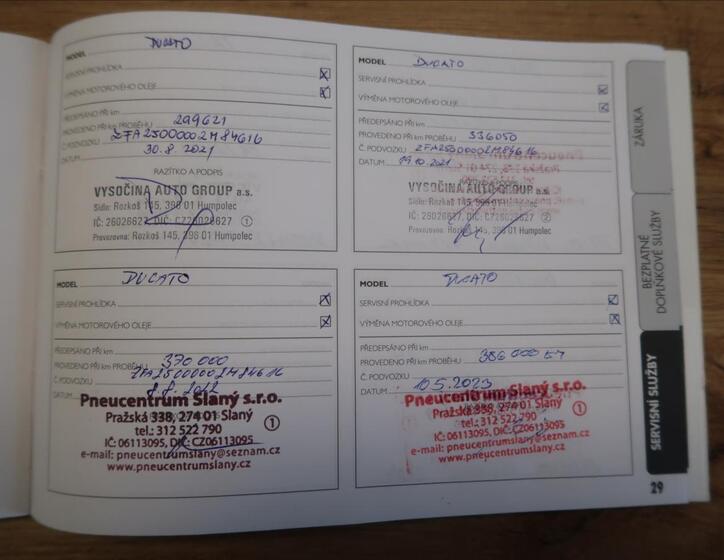 MODEL DUCATO
SERVISNÍ PROHLÍDKA
VÝMĚNA MOTOROVÉHO OLEJE
PŘEDEPSÁNO PŘI km
PROVEDENO PŘI km PROBĚHU 299621
Č. PODVOZKU ZFA2500002M84616
DATUM 30.8.2021
RAZÍTKO A PODPIS
VYSOČINA AUTO GROUP a.s.
Sídlo: Rozkoš 145, 396 01 Humpolec
IČ: 26026627, DIČ: CZ26026627 1
Provozovna: Rozkoš 145, 396 01 Humpolec
MODEL DUCATO
SERVISNÍ PROHLÍDKA
VÝMĚNA MOTOROVÉHO OLEJE
PŘEDEPSÁNO PŘI km
PROVEDENO PŘI km PROBĚHU 336050
Č. PODVOZKU ZFA2500002M84616
DATUM 19.10.2021
VYSOČINA AUTO GROUP a.s.
Sídlo: Rozkoš 145, 396 01 Humpolec
IČ: 26026627, DIČ: CZ26026627 2
Provozovna: Rozkoš 145, 396 01 Humpolec
MODEL DUCATO
SERVISNÍ PROHLÍDKA
VÝMĚNA MOTOROVÉHO OLEJE
PŘEDEPSÁNO PŘI km
PROVEDENO PŘI km PROBĚHU 370 000
Č. PODVOZKU ZFA2500002M84616
DATUM 8.8.2022
Pneucentrum Slaný s.r.o.
Pražská 338, 274 01 Slaný
tel.: 312 522 790 1
IČ: 06113095, DIČ: CZ06113095
e-mail: pneucentrumslany@seznam.cz
www.pneucentrumslany.cz
MODEL DUCATO
SERVISNÍ PROHLÍDKA
VÝMĚNA MOTOROVÉHO OLEJE
PŘEDEPSÁNO PŘI km
PROVEDENO PŘI km PROBĚHU 386 000
Č. PODVOZKU
DATUM 10.5.2023
Pneucentrum Slaný s.r.o.
Pražská 338, 274 01 Slaný
tel.: 312 522 790 1
IČ: 06113095, DIČ: CZ06113095
e-mail: pneucentrumslany@seznam.cz
www.pneucentrumslany.cz
ZÁRUKA
BEZPLATNÉ
DOPLŇKOVÉ SLUŽBY
SERVISNÍ SLUŽBY
29